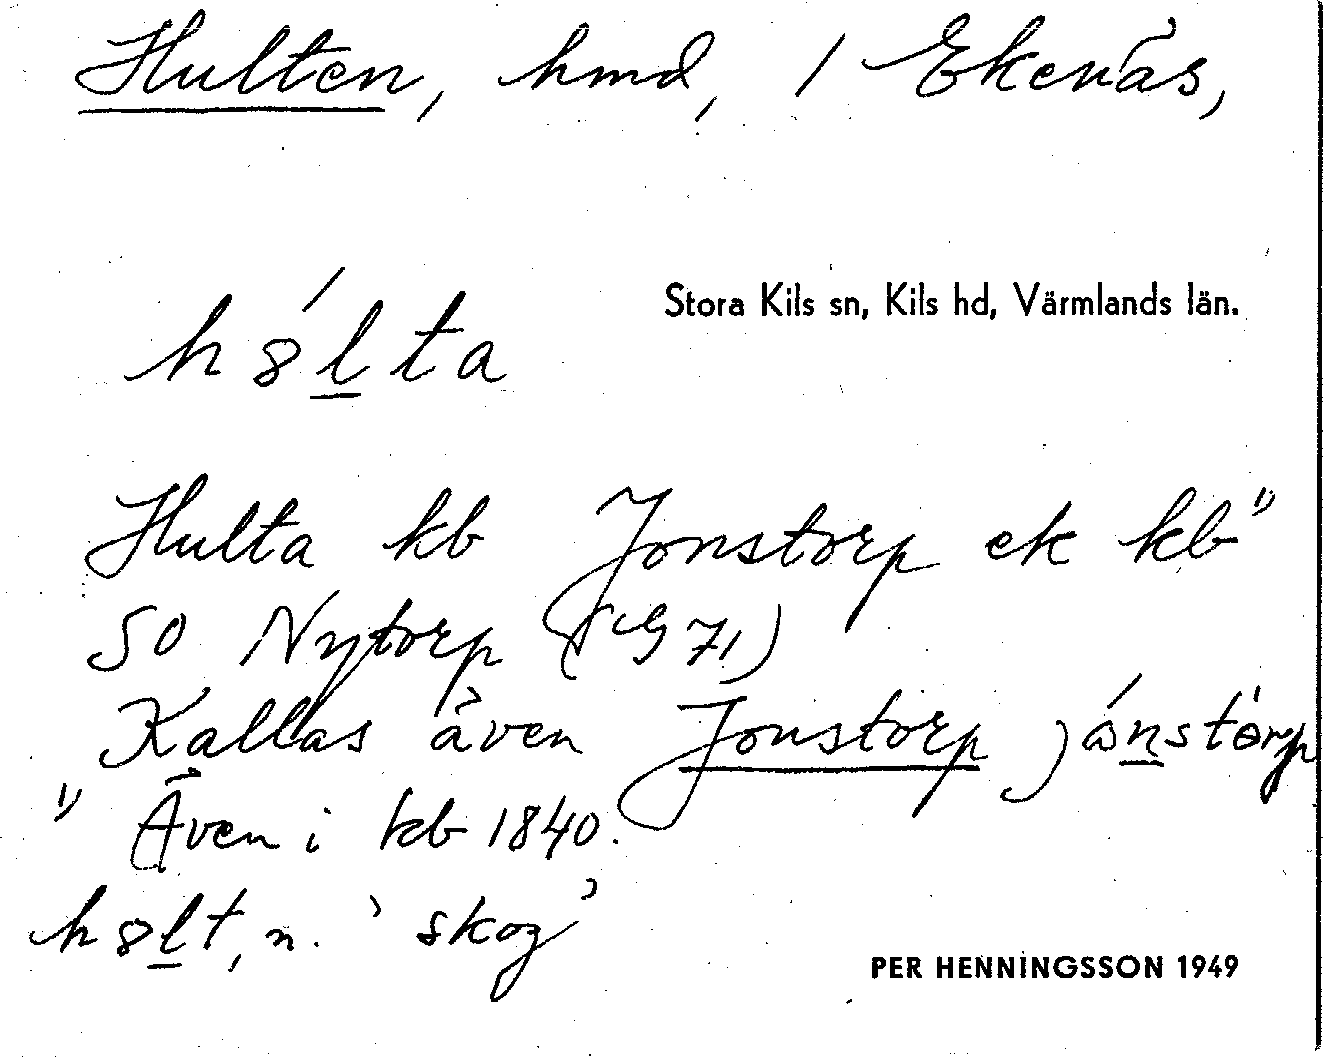 Hulten, hmd, 1 Ekenäs,
Stora Kils sn, Kils hd, Värmlands län.
h8́l̲ta
Hulta kb Jonstorp ek kb¹⁾
SO Nytorp (G 71)
Kallas även Jonstorp jånstorp
¹⁾ Även i kb 1840.
h8l̲t, n. 'skog'
PER HENNINGSSON 1949